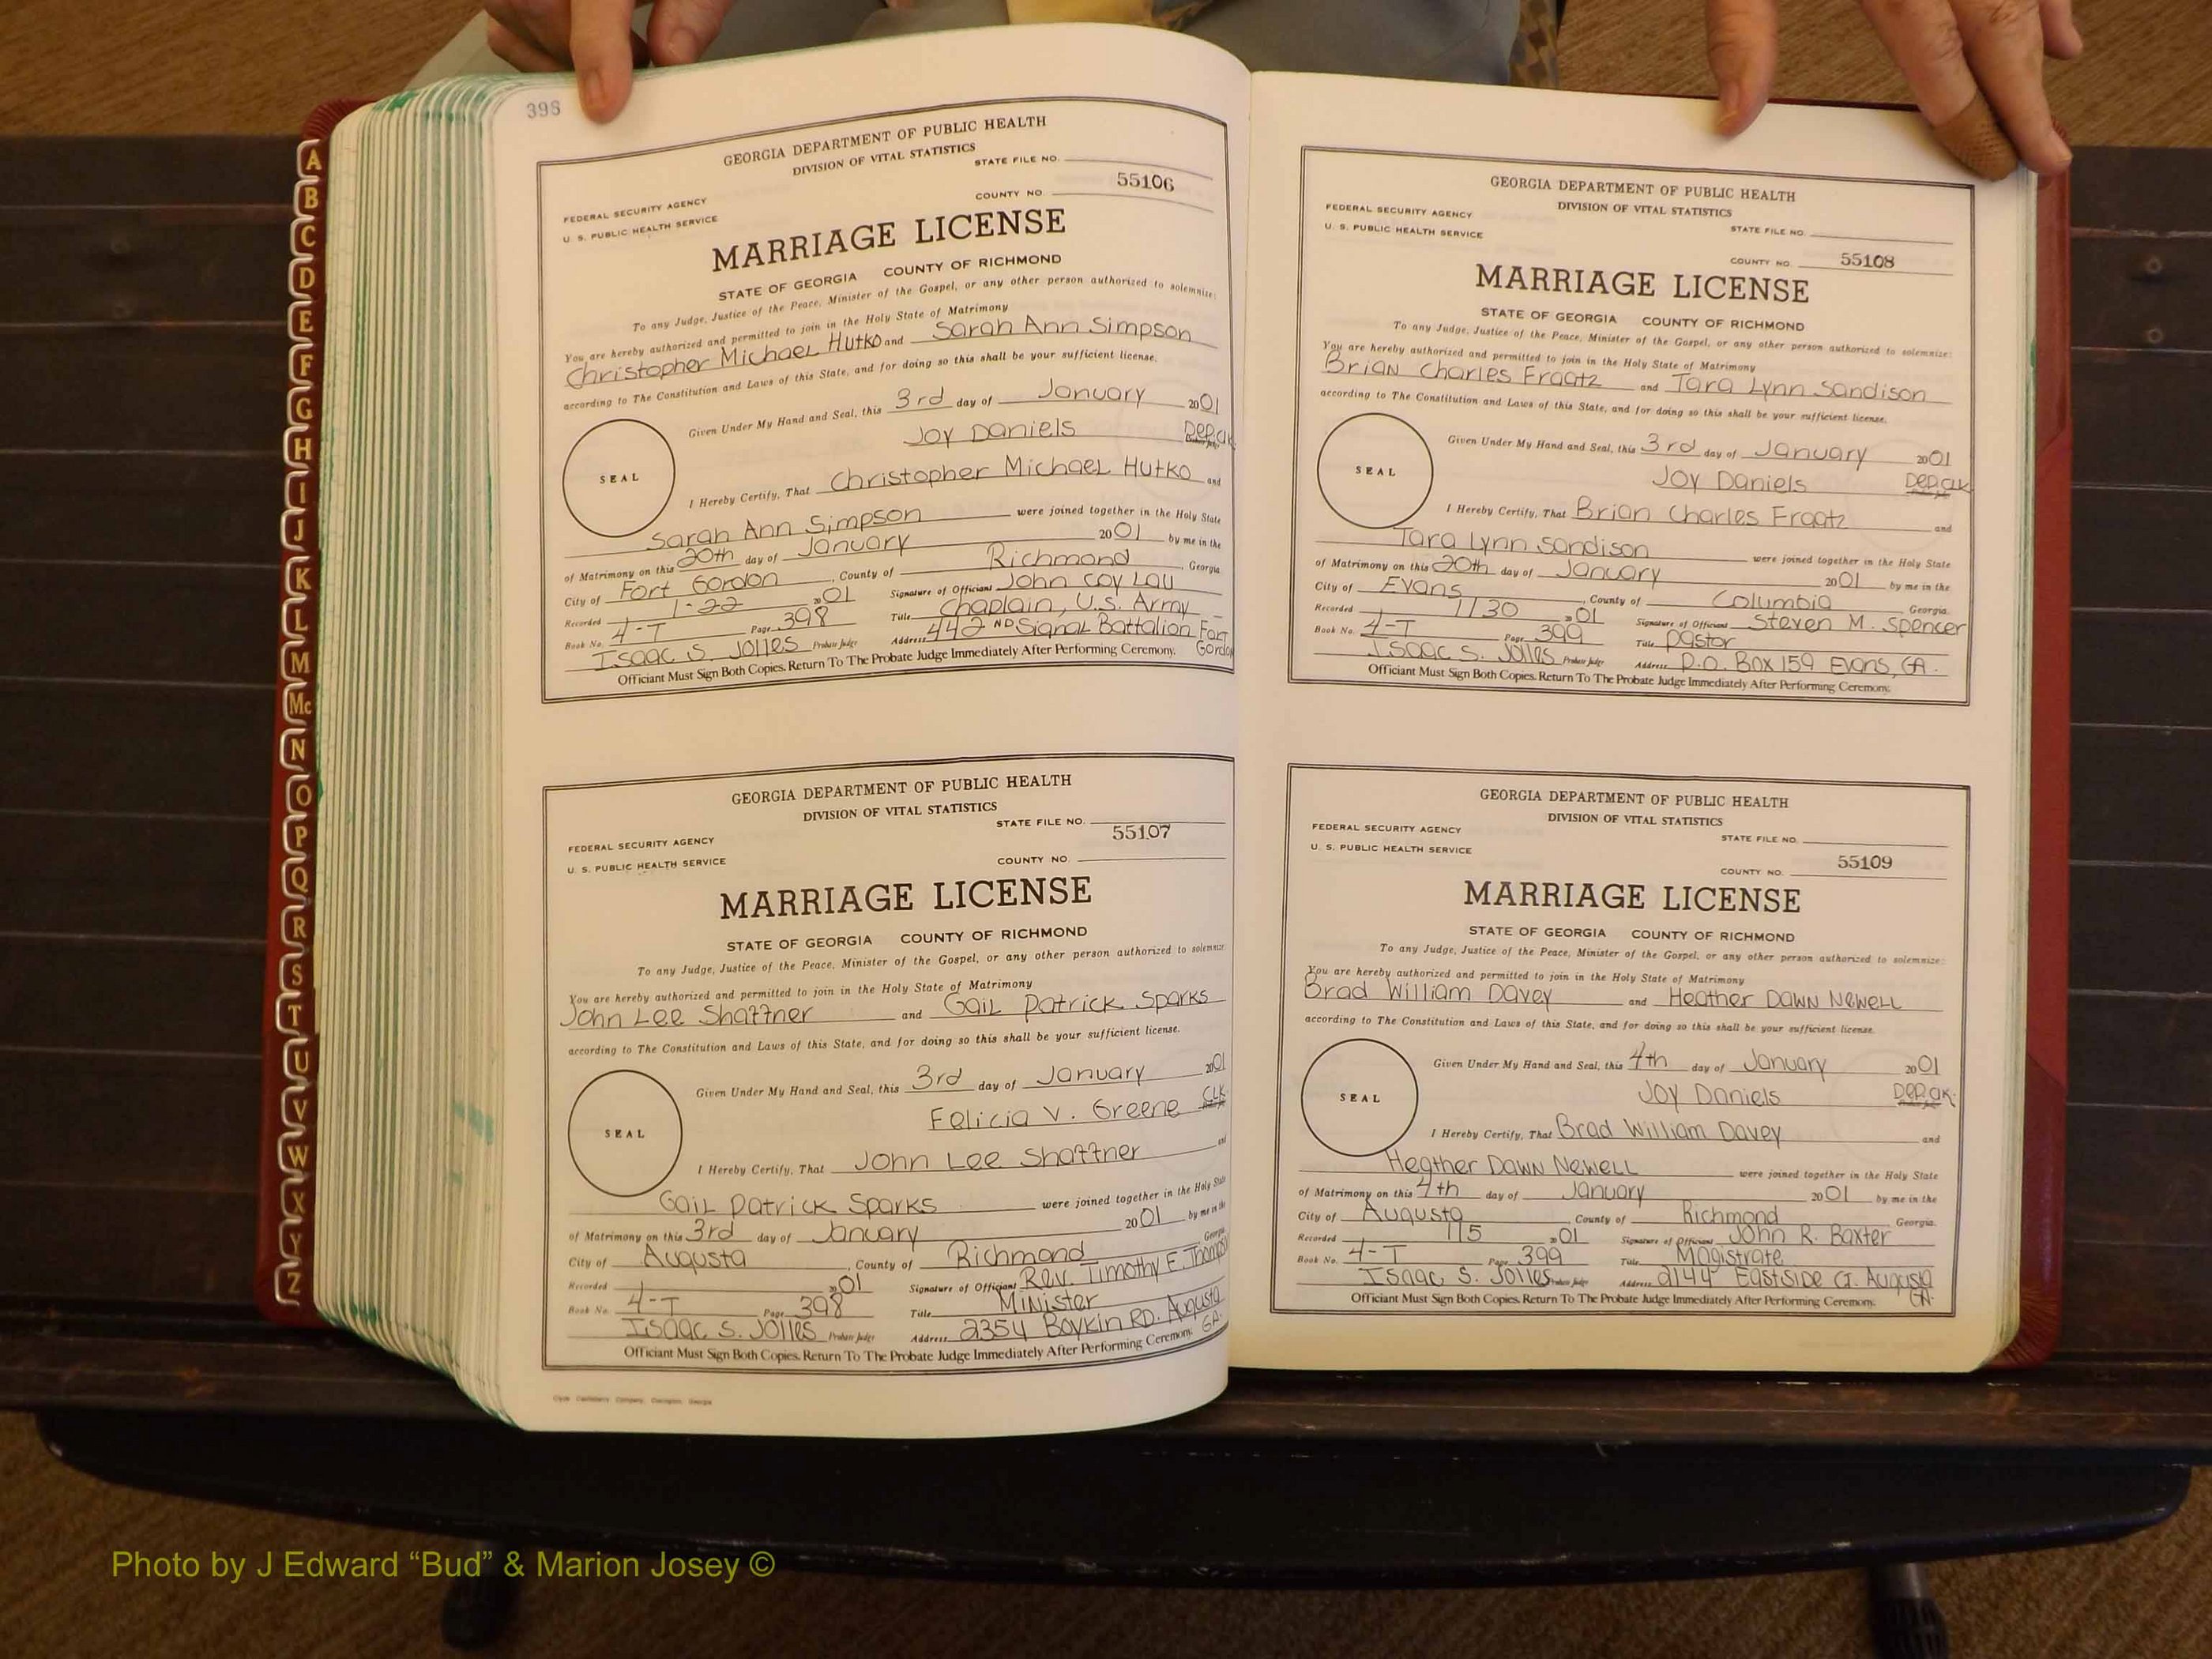 398
GEORGIA DEPARTMENT OF PUBLIC HEALTH
DIVISION OF VITAL STATISTICS
STATE FILE NO.
55106
COUNTY NO
FEDERAL SECURITY AGENCY
U. S. PUBLIC HEALTH SERVICE
MARRIAGE LICENSE
STATE OF GEORGIA COUNTY OF RICHMOND
To any Judge, Justice of the Peace, Minister of the Gospel, or any other person authorized to solemnize:
You are hereby authorized and permitted to join in the Holy State of Matrimony
Christopher Michael Hutko and Sarah Ann Simpson
according to The Constitution and Laws of this State, and for doing so this shall be your sufficient license.
Given Under My Hand and Seal, this 3rd day of January 2001
Joy Daniels Dep.Clk
SEAL
I Hereby Certify, That Christopher Michael Hutko and
Sarah Ann Simpson were joined together in the Holy State
of Matrimony on this 20th day of January 2001 by me in the
City of Fort Gordon, County of Richmond, Georgia
Recorded 1-22 2001 Signature of Officiant John Coy Lau
Book No. 4-T Page 398 Title Chaplain, U.S. Army
Isaac S. Jolles Probate Judge Address 442 ND Signal Battalion Fort Gordon
Officiant Must Sign Both Copies. Return To The Probate Judge Immediately After Performing Ceremony.
GEORGIA DEPARTMENT OF PUBLIC HEALTH
DIVISION OF VITAL STATISTICS
STATE FILE NO.
55107
FEDERAL SECURITY AGENCY
COUNTY NO.
U. S. PUBLIC HEALTH SERVICE
MARRIAGE LICENSE
STATE OF GEORGIA COUNTY OF RICHMOND
To any Judge, Justice of the Peace, Minister of the Gospel, or any other person authorized to solemnize:
You are hereby authorized and permitted to join in the Holy State of Matrimony
John Lee Shaffner and Gail Patrick Sparks
according to The Constitution and Laws of this State, and for doing so this shall be your sufficient license.
Given Under My Hand and Seal, this 3rd day of January 2001
Felicia V. Greene CLK
SEAL
I Hereby Certify, That John Lee Shaffner and
Gail Patrick Sparks were joined together in the Holy State
of Matrimony on this 3rd day of January 2001 by me in the
City of Augusta, County of Richmond Georgia
Recorded 2001 Signature of Officiant Rev. Timothy E.
Book No. 4-T Page 398 Title Minister
Isaac S. Jolles Probate Judge Address 2354 Boykin RD. Augusta GA.
Officiant Must Sign Both Copies. Return To The Probate Judge Immediately After Performing Ceremony.
GEORGIA DEPARTMENT OF PUBLIC HEALTH
DIVISION OF VITAL STATISTICS
FEDERAL SECURITY AGENCY
U. S. PUBLIC HEALTH SERVICE
STATE FILE NO.
COUNTY NO. 55108
MARRIAGE LICENSE
STATE OF GEORGIA COUNTY OF RICHMOND
To any Judge, Justice of the Peace, Minister of the Gospel, or any other person authorized to solemnize:
You are hereby authorized and permitted to join in the Holy State of Matrimony
Brian Charles Fraatz and Tara Lynn Sandison
according to The Constitution and Laws of this State, and for doing so this shall be your sufficient license.
Given Under My Hand and Seal, this 3rd day of January 2001
Joy Daniels Dep.Clk
SEAL
I Hereby Certify, That Brian Charles Fraatz and
Tara Lynn Sandison were joined together in the Holy State
of Matrimony on this 20th day of January 2001 by me in the
City of Evans, County of Columbia Georgia
Recorded 1/30 2001 Signature of Officiant Steven M. Spencer
Book No. 4-T Page 399 Title Pastor
Isaac S. Jolles Probate Judge Address P.O. Box 159 Evans, GA.
Officiant Must Sign Both Copies. Return To The Probate Judge Immediately After Performing Ceremony.
GEORGIA DEPARTMENT OF PUBLIC HEALTH
DIVISION OF VITAL STATISTICS
FEDERAL SECURITY AGENCY
STATE FILE NO.
U. S. PUBLIC HEALTH SERVICE
COUNTY NO. 55109
MARRIAGE LICENSE
STATE OF GEORGIA COUNTY OF RICHMOND
To any Judge, Justice of the Peace, Minister of the Gospel, or any other person authorized to solemnize:
You are hereby authorized and permitted to join in the Holy State of Matrimony
Brad William Davey and Heather Dawn Newell
according to The Constitution and Laws of this State, and for doing so this shall be your sufficient license.
Given Under My Hand and Seal, this 4th day of January 2001
Joy Daniels Dep.Clk.
SEAL
I Hereby Certify, That Brad William Davey and
Heather Dawn Newell were joined together in the Holy State
of Matrimony on this 4th day of January 2001 by me in the
City of Augusta, County of Richmond Georgia.
Recorded 1/5 2001 Signature of Officiant John R. Baxter
Book No. 4-T Page 399 Title Magistrate
Isaac S. Jolles Probate Judge Address 2144 Eastside Ct. Augusta GA.
Officiant Must Sign Both Copies. Return To The Probate Judge Immediately After Performing Ceremony.
A
B
C
D
E
F
G
H
I
J
K
L
M
Mc
N
O
P
Q
R
S
T
U
V
W
X
Y
Z
Photo by J Edward “Bud” & Marion Josey ©